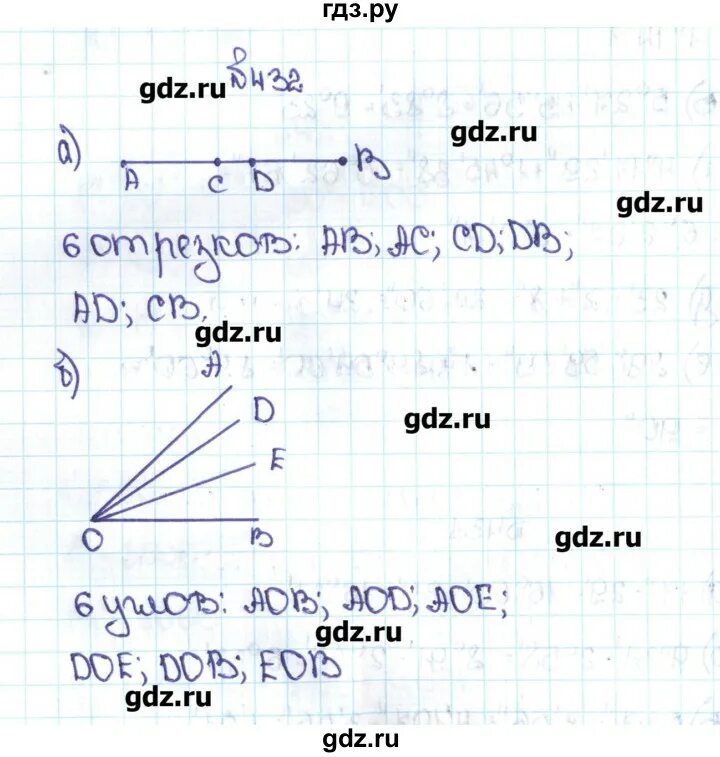 гдз.ру
gdz.ru
№432
gdz.ru
а)
A C D B
gdz.ru
6 отрезков: AB; AC; CD; DB;
AD; CB.
gdz.ru
б)
A
D
gdz.ru
E
O B
gdz.ru
6 углов: AOB; AOD; AOE;
gdz.ru
DOE; DOB; EOB
gdz.ru
gdz.ru